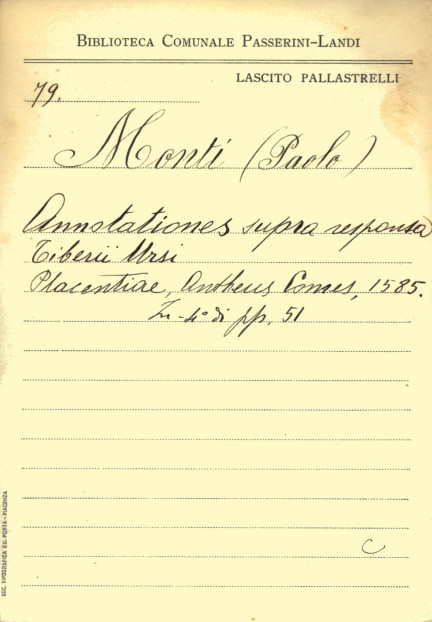 BIBLIOTECA COMUNALE PASSERINI-LANDI
LASCITO PALLASTRELLI
79.
Monti (Paolo)
Annotationes supra responsa
Tiberii Ursi
Placentiae, Antheus Comes, 1585.
In-4° di pp. 51
C
SOC. TIPOGRAFICA ED. PORTA - PIACENZA